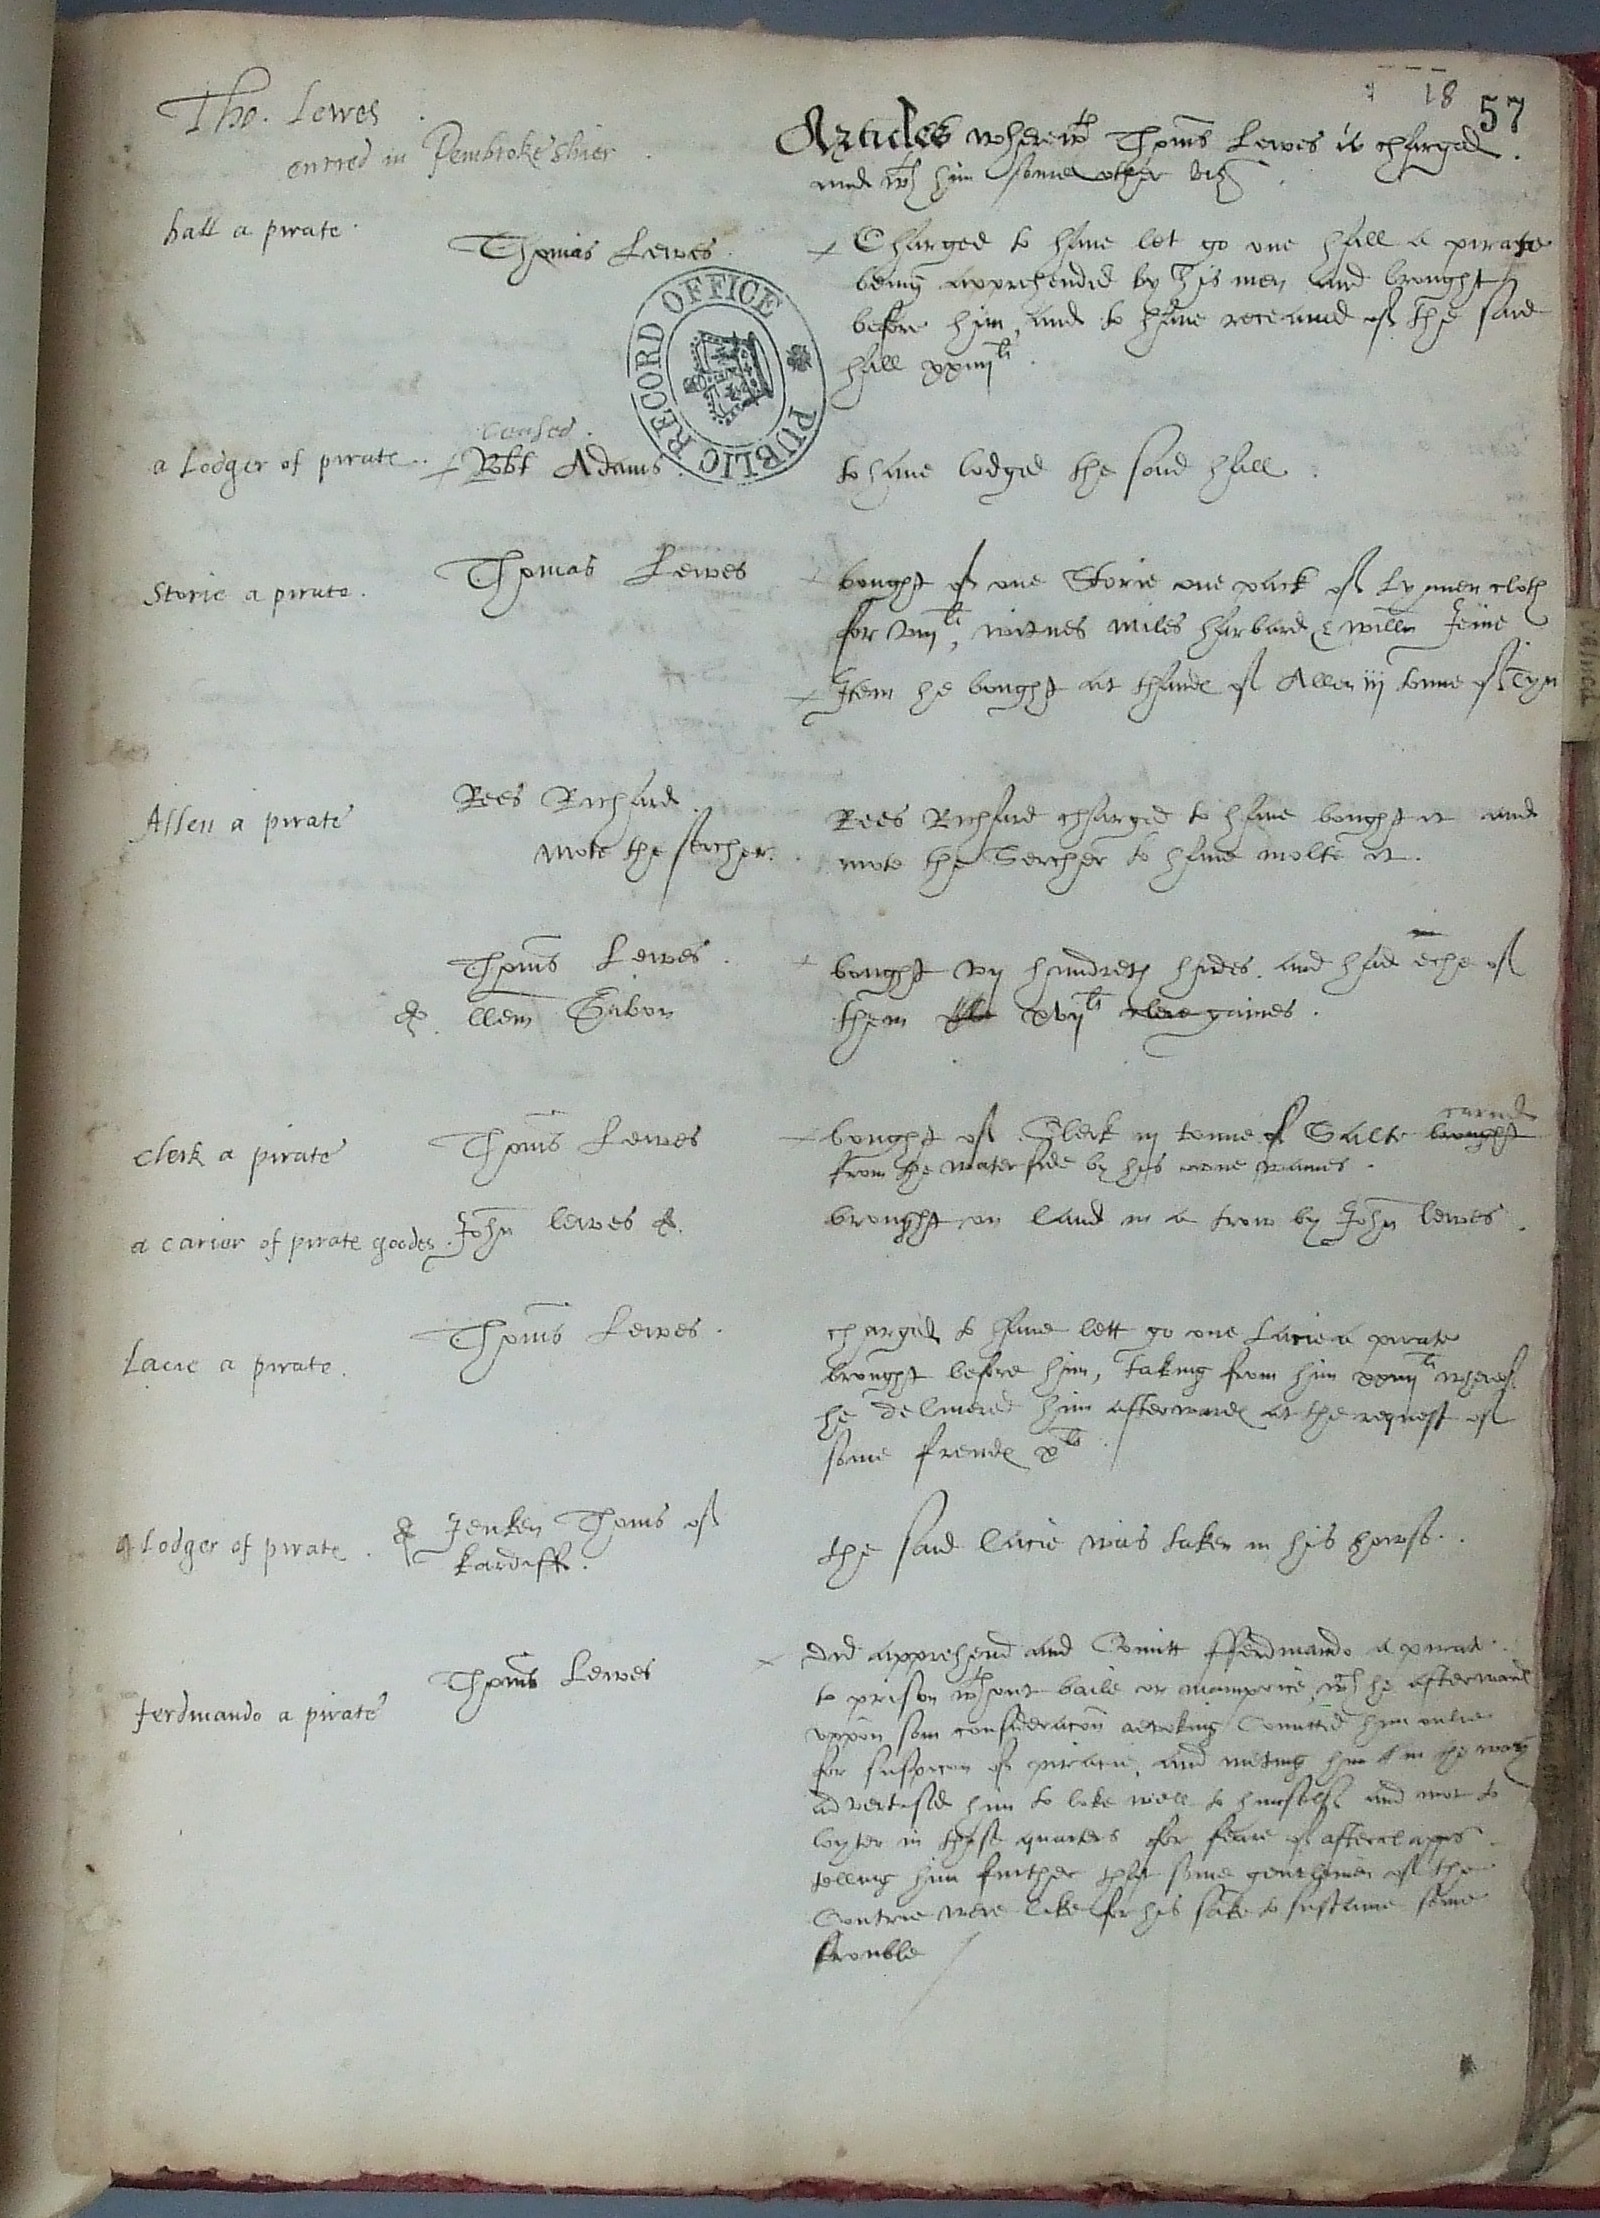 18
57
Tho. Lewes
entred in Pembrokeshier
Articles wherewth Thoms Lewes is charged
and wth him some other viz
hall a pirate
Thomas Lewes
Charged to haue let go one hall a pirate
being apprehended by his men and brought
before him, and to haue receaued of the said
hall xxiiij li
PUBLIC RECORD OFFICE
a Lodger of pirate
Robt Adams
to haue lodged the said hall
Storie a pirate
Thomas Lewes
bought of one Storie one pack of Lynnen cloth
for viij li, witnes Miles harbard & willm
Item he bought at thande of Allen iij tonne of Tyn
Allen a pirate
Rees Richard
mote the sercher
Rees Richard charged to haue bought it and
mote the Sercher to haue molte it
Thoms Lewes
& llen Gibon
bought vij hundreth hides. and had eche of
them xvij li clere gaines
Clerk a pirate
Thoms Lewes
bought of Clerk iij tonne of Salt bought
caried
from the water side by his owne waines
a carier of pirate goodes
John lewes &
brought on land in a trow by John lewes
Lacie a pirate
Thoms Lewes
charged to haue lett go one Lacie a pirate
brought before him, taking from him xxiiij li wherof
he deliuered him afterward at the request of
some frende x li
A Lodger of pirate
& Jenken Thoms of
kardiff
the said lacie was taken in his howse
Ferdinando a pirate
Thoms Lewes
Did apprehend and Comitt Fferdinando a pirate
to prison wthout baile or mainprice, wch he afterward
vppon som consideracon revoking Comitted him onlie
for suspicon of piracie, and meting him in the way
advertised him to loke well to himselfe and not to
loyter in these quarters for feare of afterclapps
telling him further that some gentlemen of the
Contrie were like for his sake to sustaine some
trouble